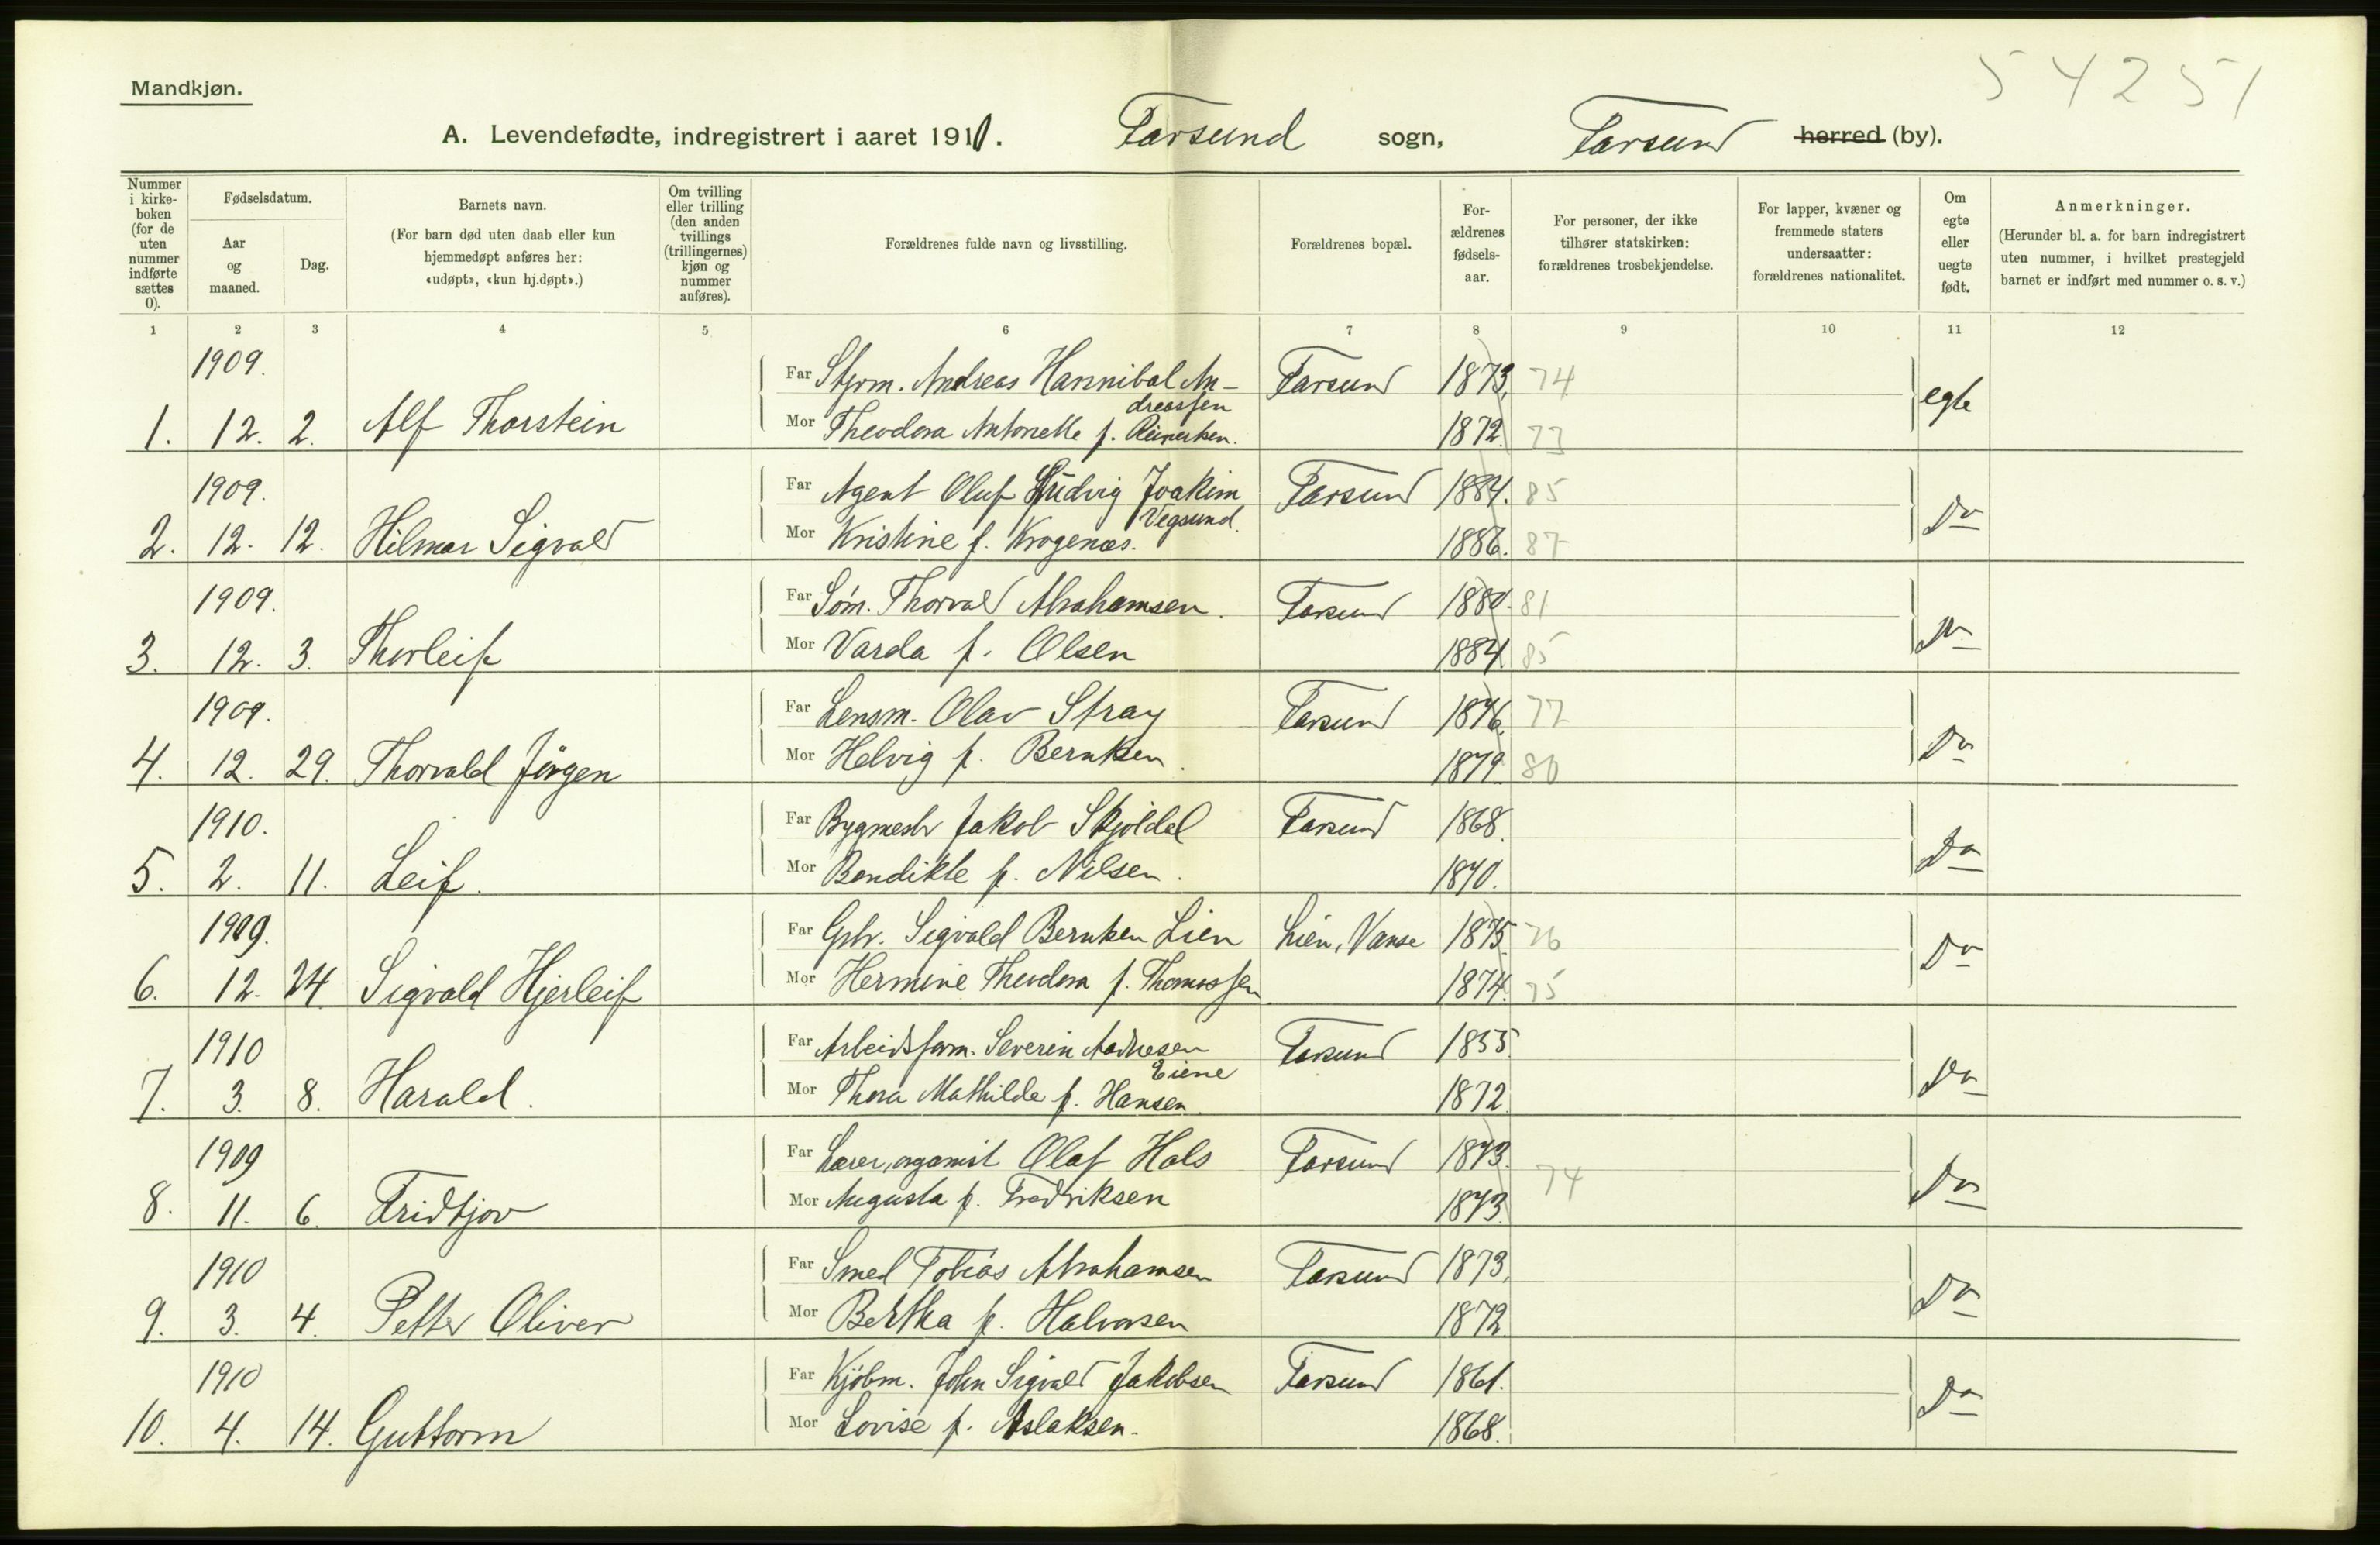 54251
Mandkjøn.
A. Levendefødte, indregistrert i aaret 1910. Farsund sogn, Farsund herred (by).
Nummer i kirke-boken (for de uten nummer indførte sættes 0).
Fødselsdatum.
Aar og maaned.
Dag.
Barnets navn.
(For barn død uten daab eller kun hjemmedøpt anføres her: «udøpt», «kun hj.døpt».)
Om tvilling eller trilling (den anden tvillings (trillingernes) kjøn og nummer anføres).
Forældrenes fulde navn og livsstilling.
Forældrenes bopæl.
For-ældrenes fødsels-aar.
For personer, der ikke tilhører statskirken: forældrenes trosbekjendelse.
For lapper, kvæner og fremmede staters undersaatter: forældrenes nationalitet.
Om egte eller uegte født.
Anmerkninger.
(Herunder bl. a. for barn indregistrert uten nummer, i hvilket prestegjeld barnet er indført med nummer o. s. v.)
1 2 3 4 5 6 7 8 9 10 11 12
1909. Far Styrm. Andreas Hannibal An-dreassen Farsund 1873. 74 egte
1. 12. 2. Alf Thorstein Mor Theodora Antonette f. Reinertsen. 1872. 73
1909. Far Agent Oluf Ludvig Joakim Vegsund. Farsund 1884. 85 Do
2. 12. 12. Hilmar Sigvald Mor Kristine f. Krogenæs. 1886. 87
1909. Far Søm. Thorvald Abrahamsen. Farsund 1880. 81 Do
3. 12. 3. Thorleif Mor Varda f. Olsen 1884 85
1909. Far Lensm. Olav Stray Farsund 1876. 77 Do
4. 12. 29. Thorvald Jörgen Mor Helvig f. Berntsen. 1879. 80
1910. Far Bygmestr Jakob Skjoldal Farsund 1868. Do
5. 2. 11. Leif. Mor Bendikte f. Nilsen. 1870.
1909. Far Gbr. Sigvald Berntsen Lien Lien, Vanse 1875 76 Do
6. 12. 24. Sigvald Hjerleif Mor Hermine Theodora f. Thomassen 1874. 75
1910 Far Arbeidsform. Severin Aadnesen Eiene Farsund 1855 Do
7. 3. 8. Harald. Mor Thora Mathilde f. Hansen. 1872.
1909 Far Lærer, organist Olaf Hals Farsund 1873. 74 Do
8. 11. 6. Fridtjov Mor Augusta f. Fredriksen 1873.
1910 Far Smed Tobias Abrahamsen Farsund 1873. Do
9. 3. 4. Petter Oliver Mor Bertha f. Halvorsen 1872
1910 Far Kjøbm. John Sigvald Jakobsen Farsund 1861. Do
10. 4. 14. Guttorm Mor Lovise f. Aslaksen. 1868.